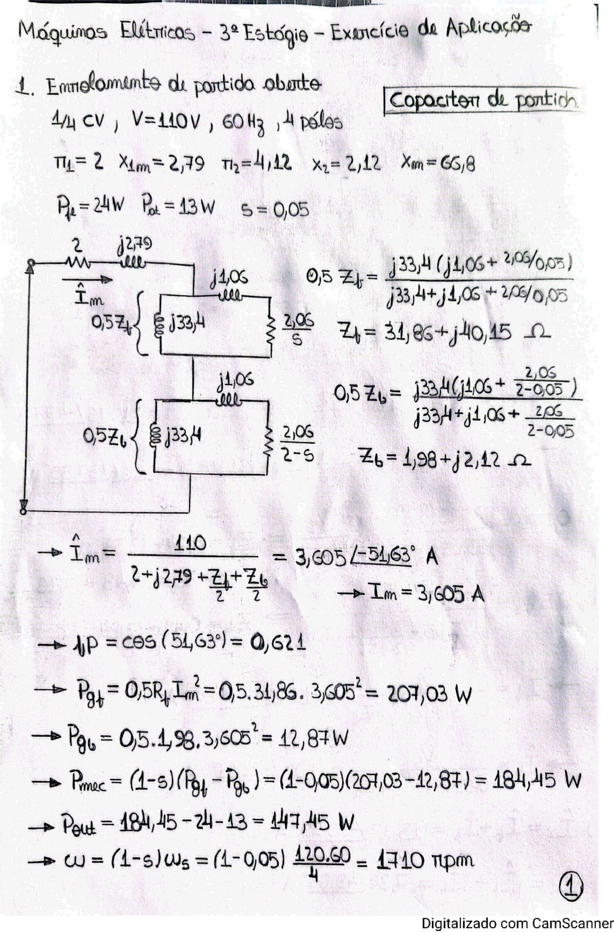 Máquinas Elétricas - 3º Estágio - Exercício de Aplicação
1. Enrolamento de partida aberto
Capacitor de partid
1/4 CV, V=110V, 60Hz, 4 pólos
r1= 2 X1m=2,79 r2=4,12 X2=2,12 Xm=66,8
Pfe=24W Pat=13W s=0,05
2 j2,79
Îm
j1,06
0,5Zf { j33,4 2,06/s
j1,06
0,5Zb { j33,4 2,06/2-s
0,5 Zf = j33,4 (j1,06 + 2,06/0,05) / j33,4+j1,06 + 2,06/0,05
Zf = 31,86+j40,15 Ω
0,5Zb = j33,4(j1,06 + 2,06/2-0,05) / j33,4+j1,06 + 2,06/2-0,05
Zb = 1,98+j2,12 Ω
→ Îm = 110 / 2+j2,79 + Zf/2 + Zb/2 = 3,605/-51,63° A
→ Im = 3,605 A
→ fp = cos (51,63°) = 0,621
→ Pgf = 0,5Rf Im² = 0,5.31,86. 3,605² = 207,03 W
→ Pgb = 0,5.1,98.3,605² = 12,87W
→ Pmec = (1-s)(Pgf - Pgb) = (1-0,05)(207,03-12,87) = 184,45 W
→ Pout = 184,45-24-13 = 147,45 W
→ ω = (1-s)ωs = (1-0,05) 120.60/4 = 1710 rpm
1
Digitalizado com CamScanner